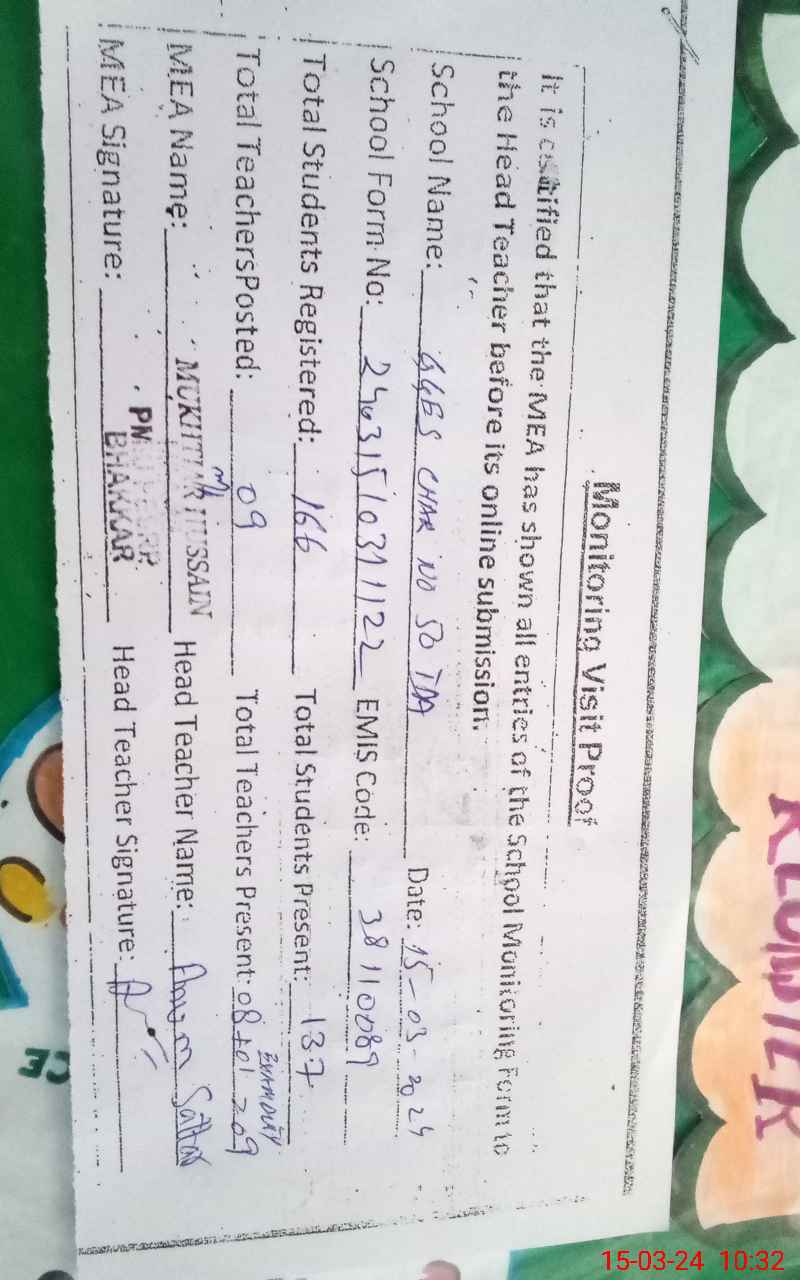 Monitoring Visit Proof
It is certified that the MEA has shown all entries of the School Monitoring Form to
the Head Teacher before its online submission.
School Name: GGES CHAK NO 50 TDA Date: 15-03-2024
School Form No: 24031510371122 EMIS Code: 38110089
Total Students Registered: 166 Total Students Present: 137
Total Teachers Posted: 09 Total Teachers Present: 08+01=09
EXAM DUTY
MEA Name: MUKHTIAR HUSSAIN Head Teacher Name: Sattar
MEA Signature: Head Teacher Signature:
BHAKKAR
15-03-24 10:32